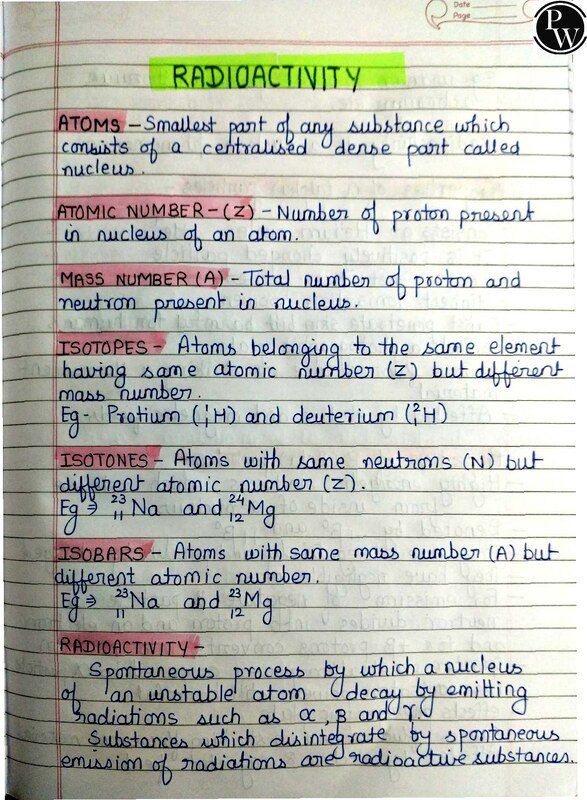 Date
Page
PW
RADIOACTIVITY
ATOMS – Smallest part of any substance which
consists of a centralised dense part called
nucleus.
ATOMIC NUMBER – (Z) – Number of proton present
in nucleus of an atom.
MASS NUMBER (A) – Total number of proton and
neutron present in nucleus.
ISOTOPES – Atoms belonging to the same element
having same atomic number (Z) but different
mass number.
Eg – Protium (¹₁H) and deuterium (²₁H)
ISOTONES – Atoms with same neutrons (N) but
different atomic number (Z).
Eg ⇒ ²³₁₁Na and ²⁴₁₂Mg
ISOBARS – Atoms with same mass number (A) but
different atomic number.
Eg ⇒ ²³₁₁Na and ²³₁₂Mg
RADIOACTIVITY –
Spontaneous process by which a nucleus
of an unstable atom decay by emitting
radiations such as α, β and γ.
Substances which disintegrate by spontaneous
emission of radiations are radioactive substances.